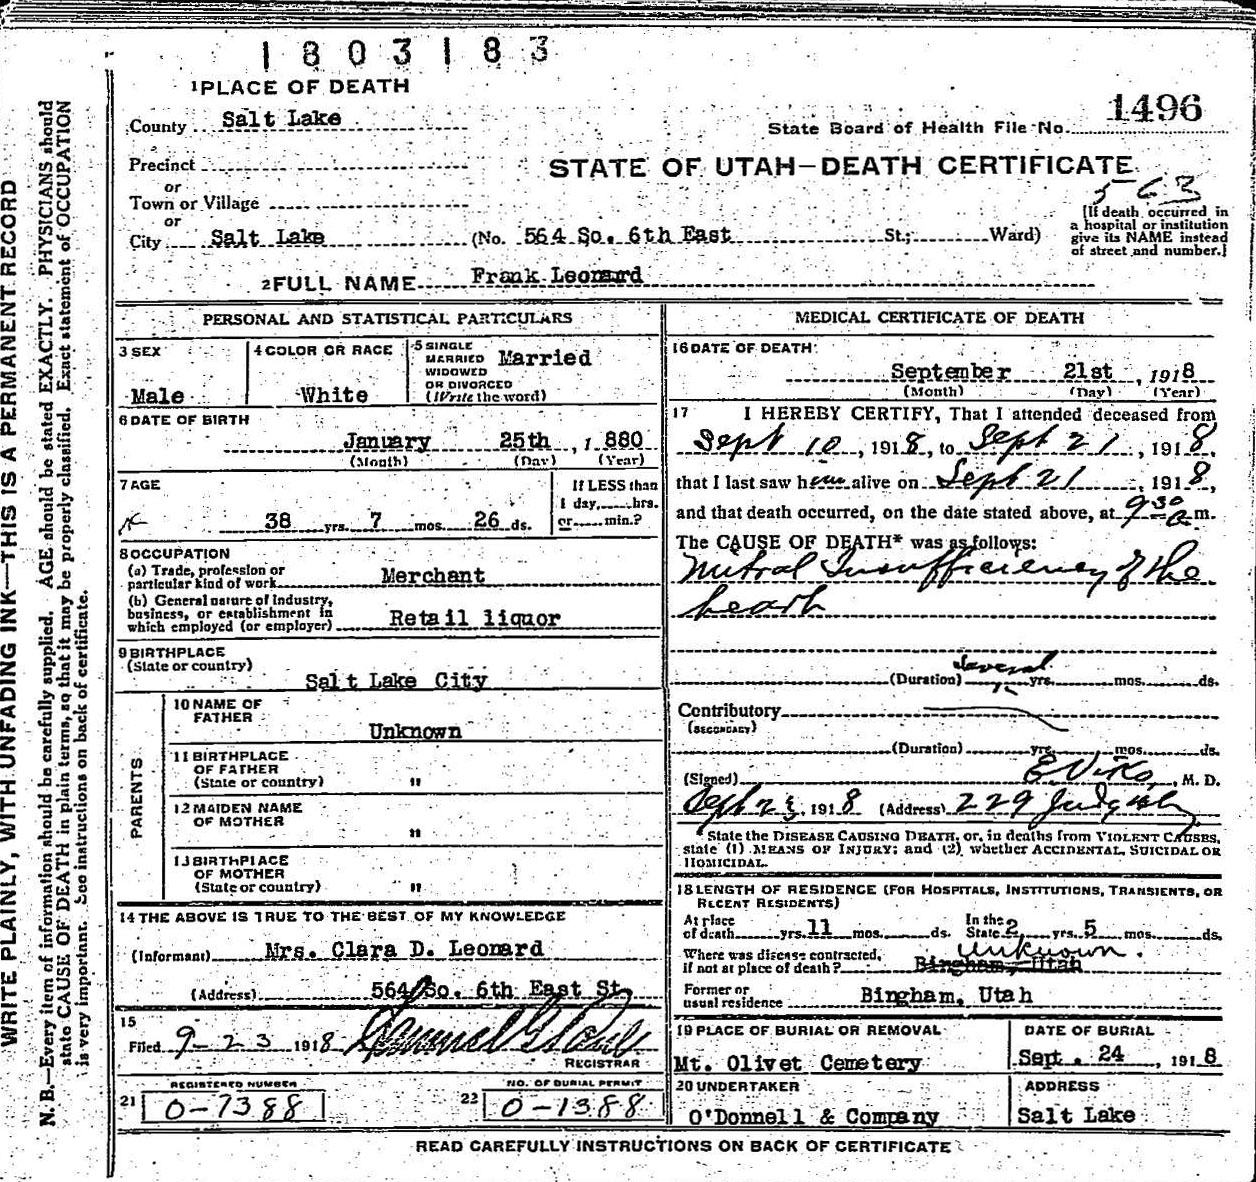 1803183
1 PLACE OF DEATH
1496
County Salt Lake
State Board of Health File No.
Precinct
STATE OF UTAH—DEATH CERTIFICATE
or
563
Town or Village
or
City Salt Lake (No. 564 So. 6th East St.; Ward)
[If death occurred in
a hospital or institution
give its NAME instead
of street and number.]
2 FULL NAME Frank Leonard
PERSONAL AND STATISTICAL PARTICULARS
3 SEX
Male
4 COLOR OR RACE
White
5 SINGLE
MARRIED
WIDOWED
OR DIVORCED
(Write the word)
Married
6 DATE OF BIRTH
January 25th, 1880
(Month) (Day) (Year)
7 AGE
38 yrs. 7 mos. 26 ds.
If LESS than
1 day, hrs.
or min.?
8 OCCUPATION
(a) Trade, profession or
particular kind of work Merchant
(b) General nature of Industry,
business, or establishment in
which employed (or employer) Retail liquor
9 BIRTHPLACE
(State or country)
Salt Lake City
PARENTS
10 NAME OF
FATHER
Unknown
11 BIRTHPLACE
OF FATHER
(State or country) "
12 MAIDEN NAME
OF MOTHER
"
13 BIRTHPLACE
OF MOTHER
(State or country) "
14 THE ABOVE IS TRUE TO THE BEST OF MY KNOWLEDGE
(Informant) Mrs. Clara D. Leonard
(Address) 564 So. 6th East St.
15
Filed 9-23 1918
REGISTRAR
REGISTERED NUMBER
21 0-7388
NO. OF BURIAL PERMIT
22 0-1388
MEDICAL CERTIFICATE OF DEATH
16 DATE OF DEATH
September 21st, 1918
(Month) (Day) (Year)
17 I HEREBY CERTIFY, That I attended deceased from
Sept 10, 1918, to Sept 21, 1918,
that I last saw him alive on Sept 21, 1918,
and that death occurred, on the date stated above, at 9 30 a.m.
The CAUSE OF DEATH* was as follows:
Mitral Insufficiency of the
heart
several
(Duration) yrs. mos. ds.
Contributory
(SECONDARY)
(Duration) yrs. mos. ds.
(Signed) M. D.
Sept 23, 1918 (Address) 229 Judge Bldg
*State the DISEASE CAUSING DEATH, or, in deaths from VIOLENT CAUSES,
state (1) MEANS OF INJURY; and (2) whether ACCIDENTAL, SUICIDAL OR
HOMICIDAL.
18 LENGTH OF RESIDENCE (FOR HOSPITALS, INSTITUTIONS, TRANSIENTS, OR
RECENT RESIDENTS)
At place
of death yrs. 11 mos. ds.
In the
State 2 yrs. 5 mos. ds.
Where was disease contracted,
if not at place of death? Bingham, Utah
Unknown.
Former or
usual residence Bingham, Utah
19 PLACE OF BURIAL OR REMOVAL
Mt. Olivet Cemetery
DATE OF BURIAL
Sept. 24, 1918
20 UNDERTAKER
O'Donnell & Company
ADDRESS
Salt Lake
READ CAREFULLY INSTRUCTIONS ON BACK OF CERTIFICATE
WRITE PLAINLY, WITH UNFADING INK—THIS IS A PERMANENT RECORD
N. B.—Every item of information should be carefully supplied. AGE should be stated EXACTLY. PHYSICIANS should
state CAUSE OF DEATH in plain terms, so that it may be properly classified. Exact statement of OCCUPATION
is very important. See instructions on back of certificate.